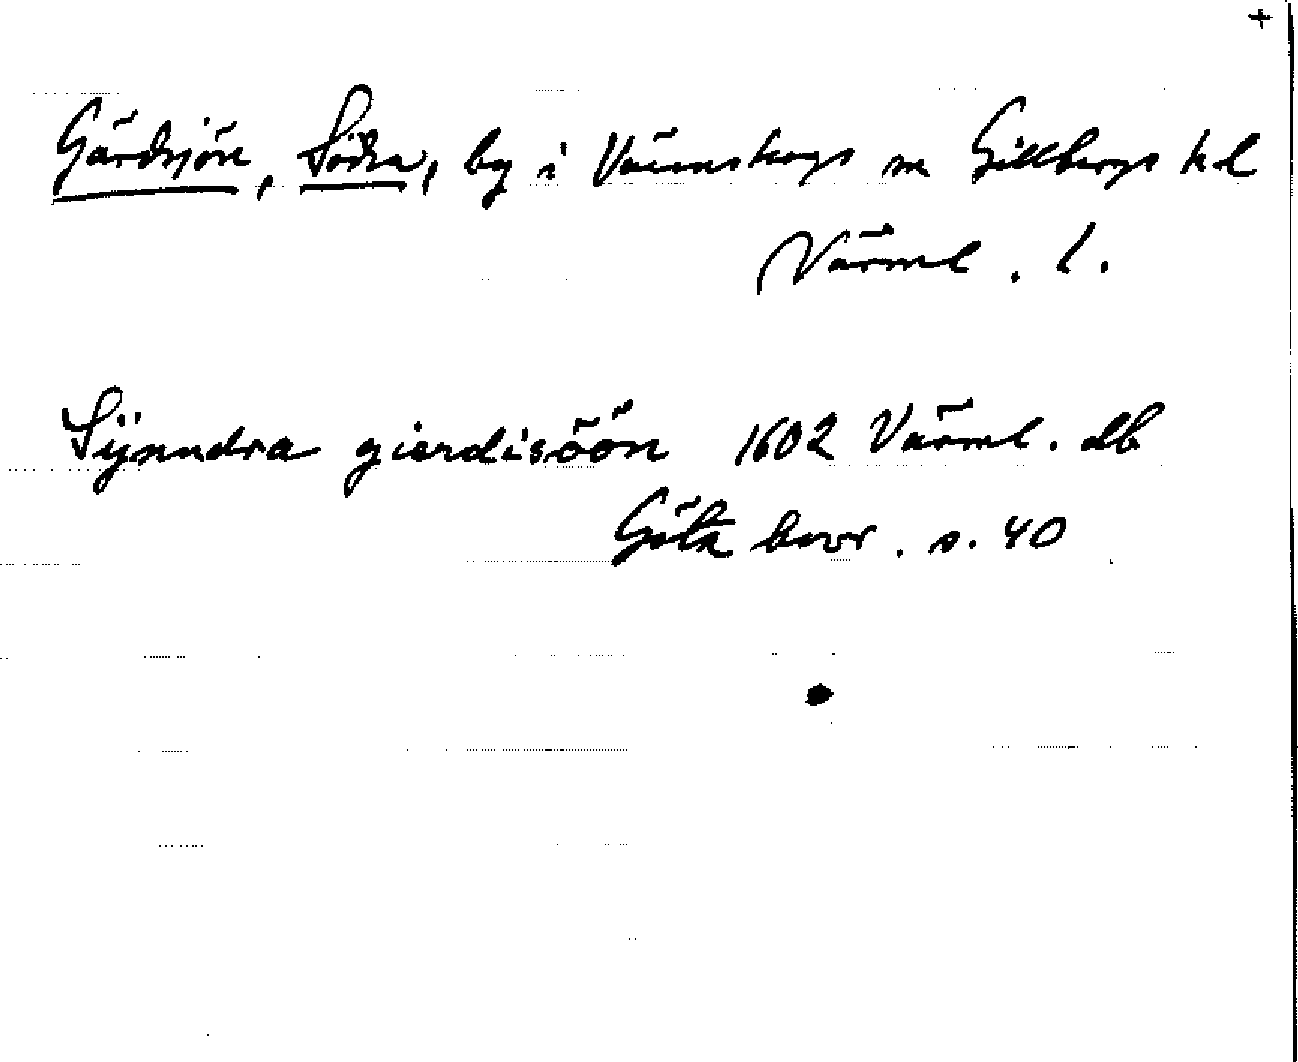 +
Gärdsjön, Södra, by i Värmskogs sn Gillbergs hd
Värml. l.
Sÿnndra gierdisöön 1602 Värml. db
Göta hovr. s. 40